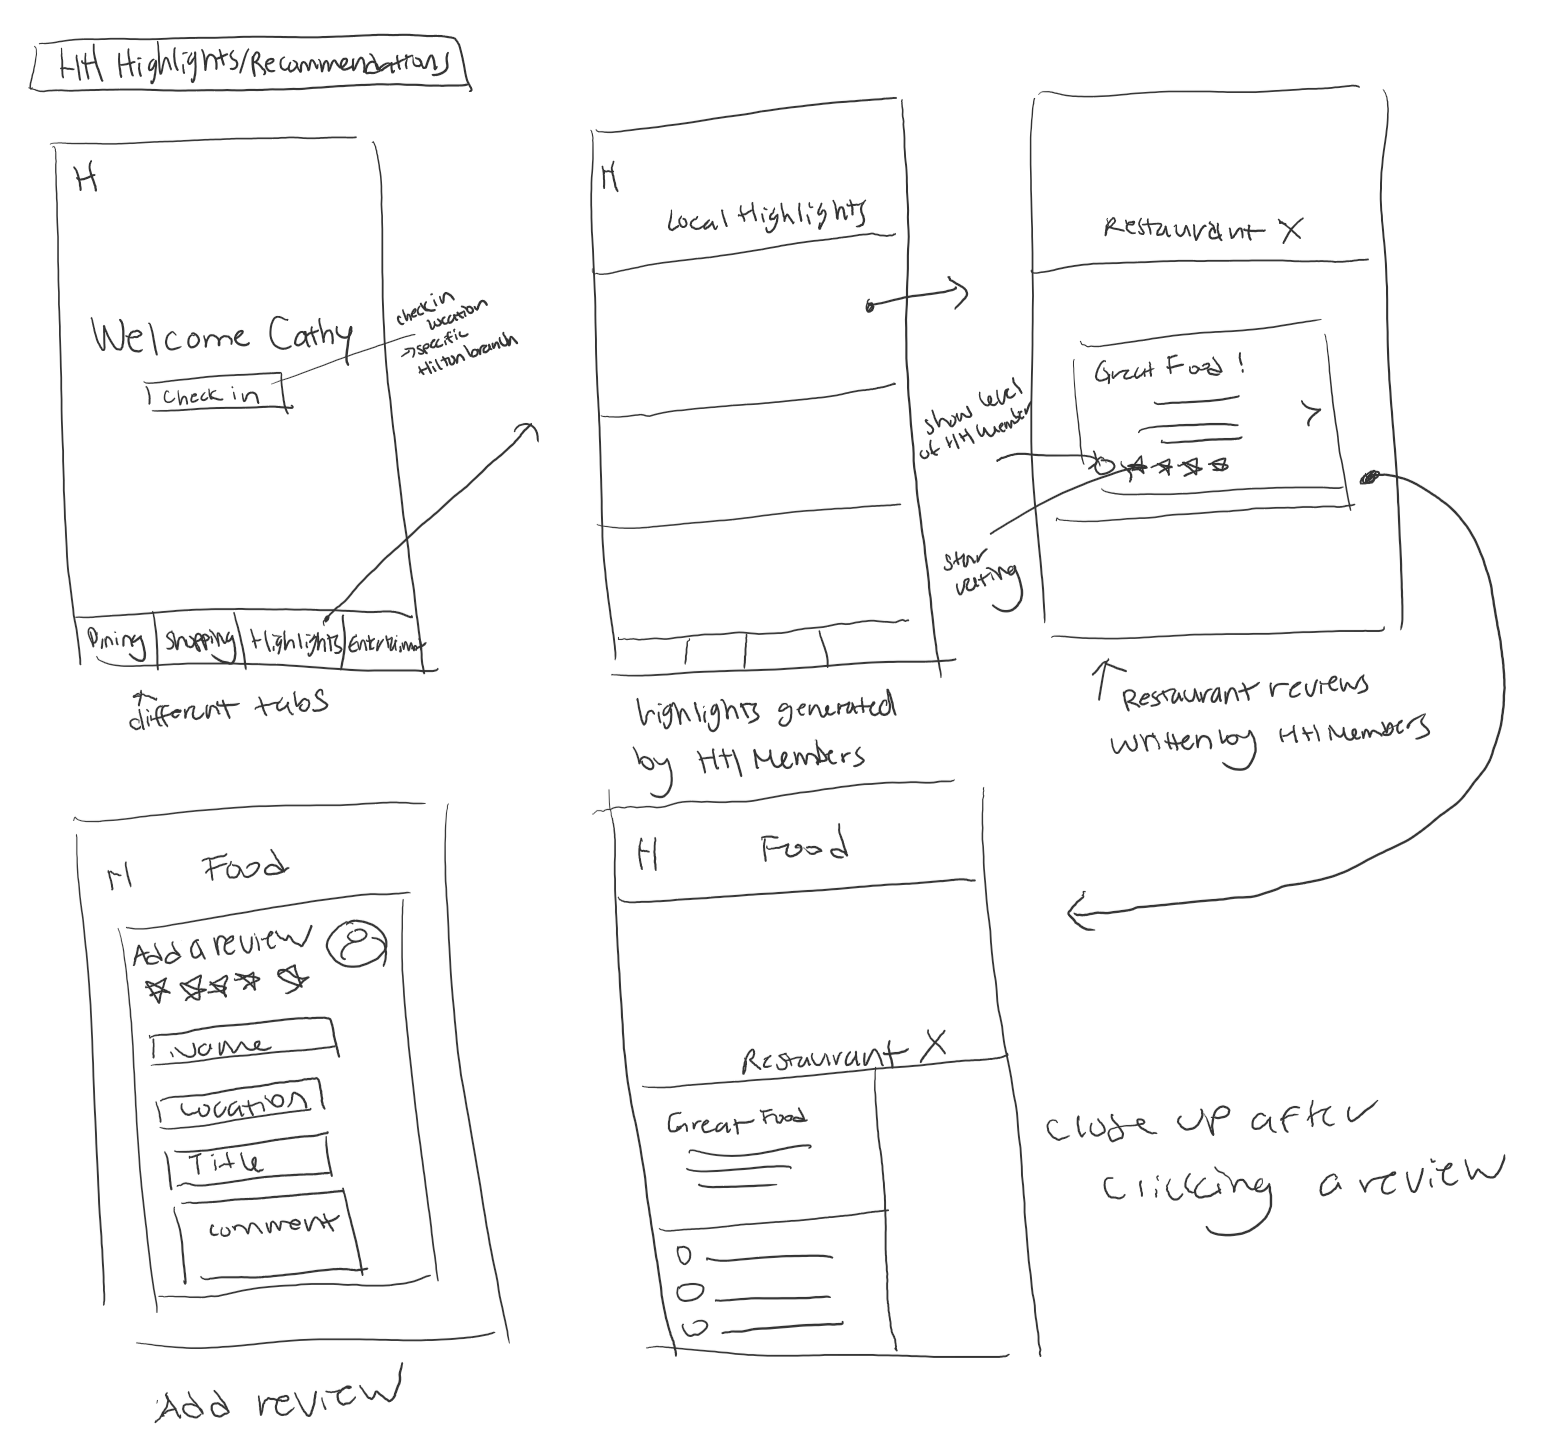 HH Highlights/Recommendations
H
Welcome Cathy
Check in
check in
location
→ specific
Hilton branch
Dining
Shopping
Highlights
different tabs
H
Local Highlights
highlights generated
by HH Members
Restaurant X
Great Food!
>
show level
of HH member
star
rating
Restaurant reviews
written by HH Members
H Food
Add a review
Name
Location
Title
comment
Add review
H Food
Restaurant X
Great Food
Close up after
clicking a review